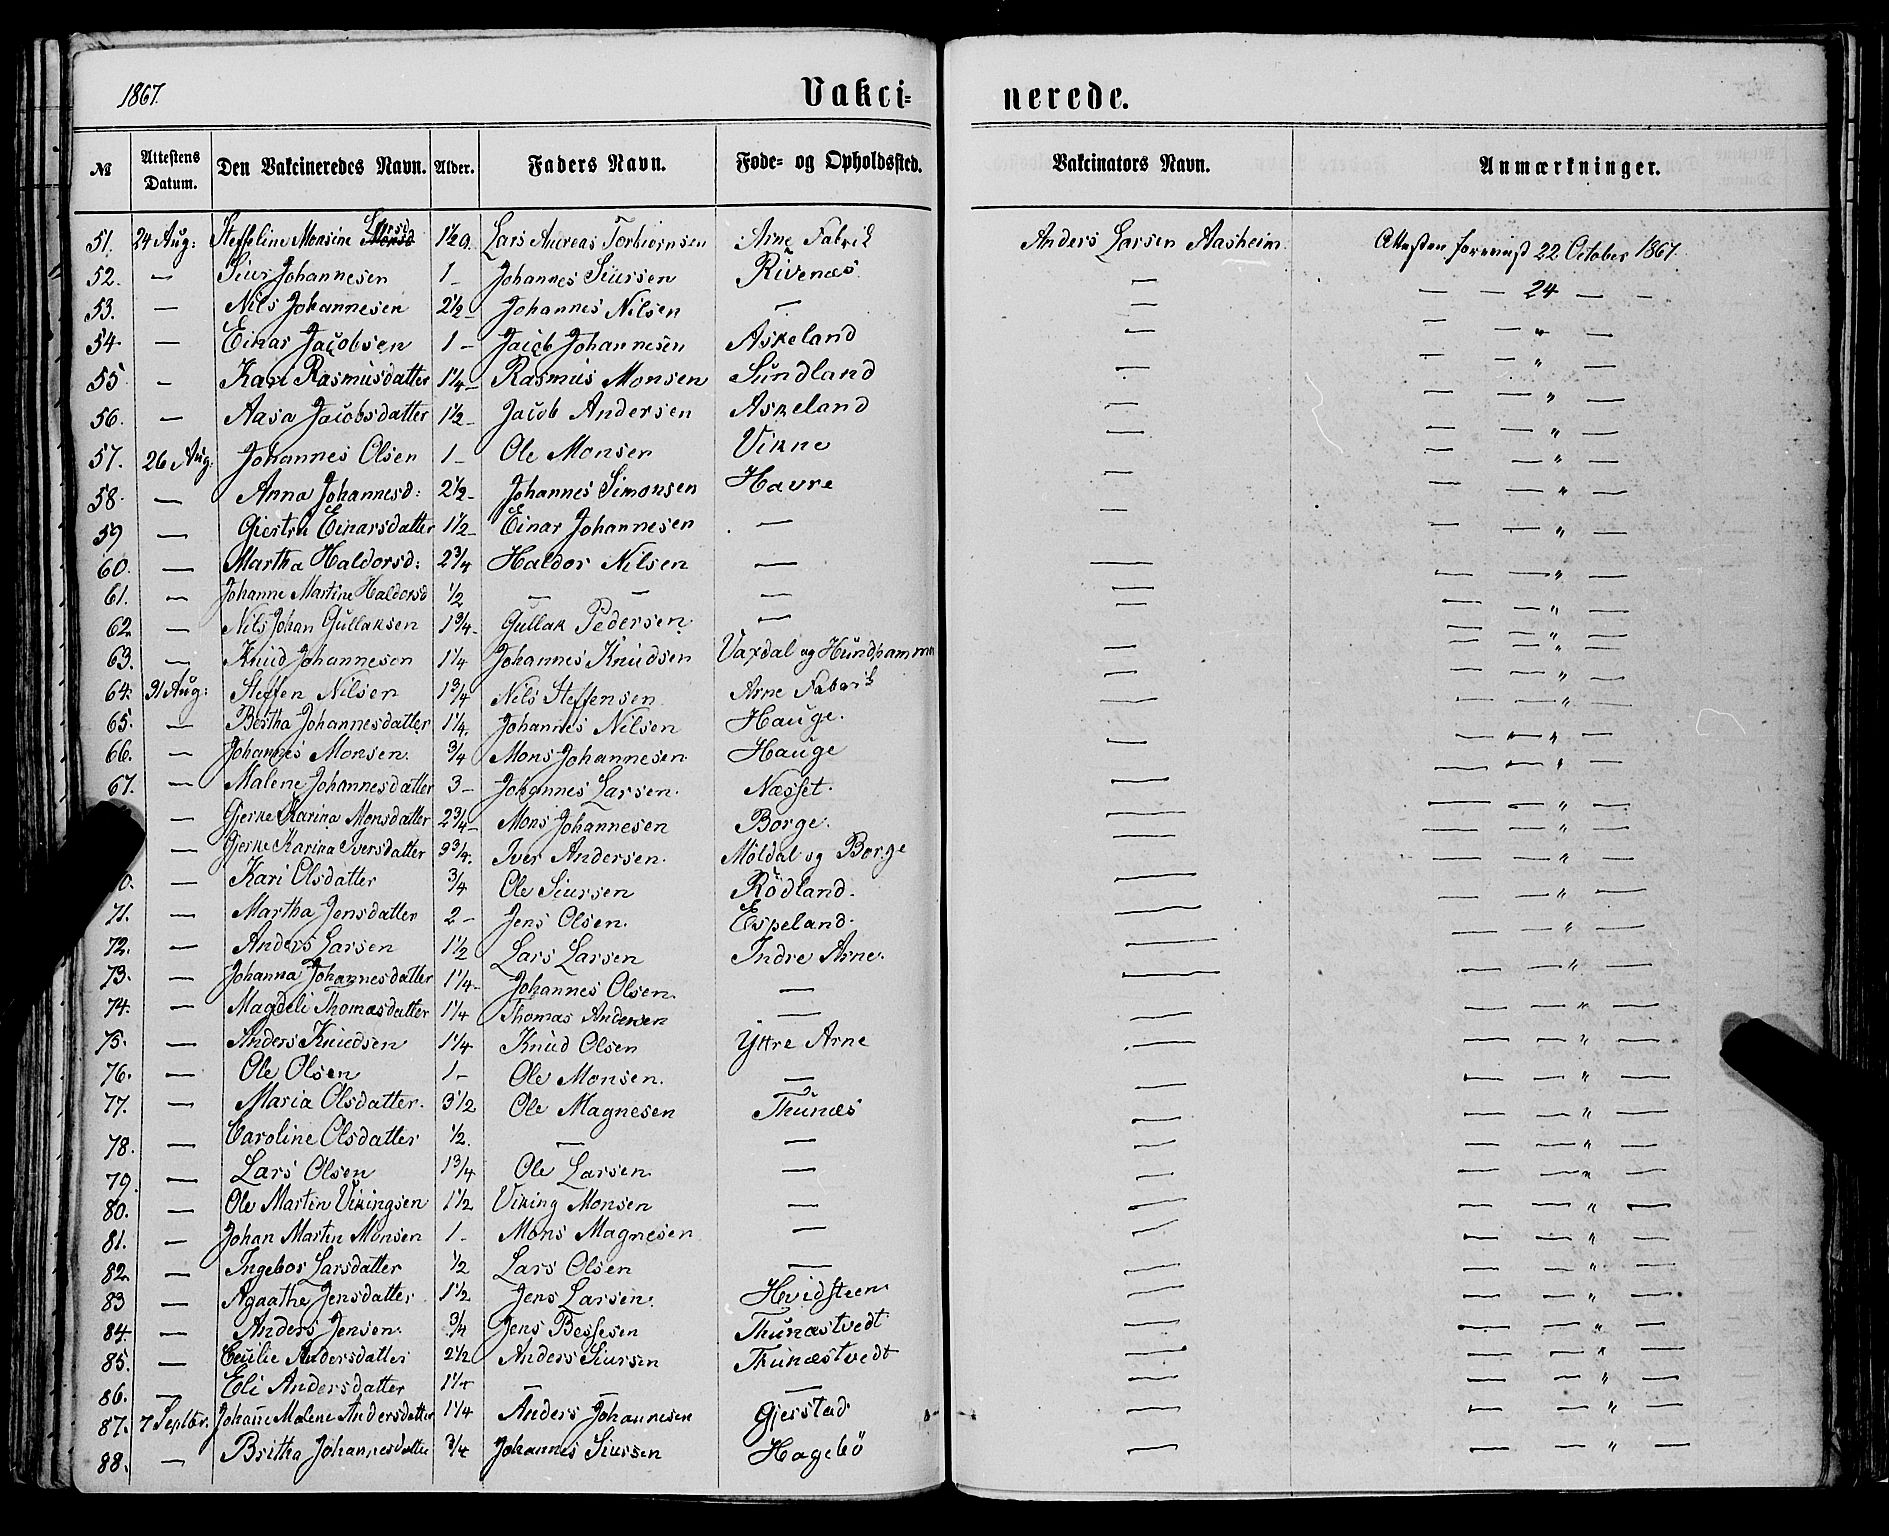 1867. Vakci- nerede.
№ Attestens Datum. Den Vakcineredes Navn. Alder. Faders Navn. Føde- og Opholdssted. Vakcinators Navn. Anmærkninger.
51. 24 Aug: Steffeline Monsine Larsd 1½ a. Lars Andreas Torbiørnsen Arne Fabrik Anders Larsen Aasheim. Attesten forevist 22 October 1867.
52. — Siur Johannesen 1 - Johannes Siursen Rivenæs. — — — 24 — —
53. — Nils Johannesen 2½ - Johannes Nilsen — — — — " —
54. — Einar Jacobsen 1 - Jacob Johannesen Askeland — — — " —
55 — Kari Rasmusdatter 1¼ - Rasmus Monsen Sundland — — — " —
56. — Aasa Jacobsdatter 1½ - Jacob Andersen Askeland — — — " —
57. 26 Aug: Johannes Olsen 1 - Ole Monsen Vikne — — — " —
58. — Anna Johannesd: 2½ - Johannes Simonsen Havre — — — " —
59 — Giertru Einarsdatter 1½ - Einar Johannesen — — — — " —
60. — Martha Haldorsd: 2¾ Haldor Nilsen — — — — " —
61. — Johanne Martine Haldorsd ½ — — — — — — " —
62. — Nils Johan Gullaksen 1¾ - Gullak Pedersen — — — — " —
63. — Knud Johannesen 1¼ Johannes Knudsen Vaxdal og Hundhammer — — — " —
64. 31 Aug: Steffen Nilsen 1¾ Nils Steffensen Arne Fabrik — — — " —
65. — Bertha Johannesdatter 1¼. Johannes Nilsen Hauge. — — — " —
66. — Johannes Monsen. ¾ Mons Johannesen Hauge — — — " —
67. — Malene Johannesdatter 3 - Johannes Larsen. Næsset. — — — " —
— Gjerke Karina Monsdatter 2¾ - Mons Johannesen Borge. — — — " —
— Gjerke Karina Iversdatter 3¾. Iver Andersen. Moldal og Borge — — — " —
0. — Kari Olsdatter ¾ Ole Siursen Rödland. — — — " —
71. — Martha Jensdatter 2 - Jens Olsen. Espeland. — — — " —
72. — Anders Larsen 1½ Lars Larsen Indre Arne. — — — " —
73. — Johanna Johannesdatter 1¼ - Johannes Olsen. — — — — " —
74. — Magdeli Thomasdatter 1¼ Thomas Andersen — — — — " —
75. — Anders Knudsen 1¼ Knud Olsen Yttre Arne — — — " —
76. — Ole Olsen 1 - Ole Monsen. — — — — " —
77. — Maria Olsdatter. 3½ Ole Magnesen Thunæs — — — " —
78. — Caroline Olsdatter ½. — — — — — " —
79. — Lars Olsen 1¾ Ole Larsen. — — — — " —
80. — Ole Martin Vikingsen 1½ Viking Monsen — — — — " —
81. — Johan Martin Monsen 1 - Mons Magnesen — — — — " —
82. — Ingebor Larsdatter ½ Lars Olsen — — — — " —
83 — Agaathe Jensdatter 1½ Jens Larsen. Hvidsteen — — — " —
84. — Anders Jensen. ¾ Jens Bessesen Thunæstvedt — — — " —
85. — Cecilie Andersdatter 2½ Anders Siursen Thunæstvedt — — — " —
86. — Eli Andersdatter 1¼ — — — — — — " —
87. 7 Septbr. Johanne Malene Andersdatter 1¼ Anders Johannesen Gjerstad — — — " —
88. — Britha Johannesdatter ¾ Johannes Siursen Hagebö — — — " —